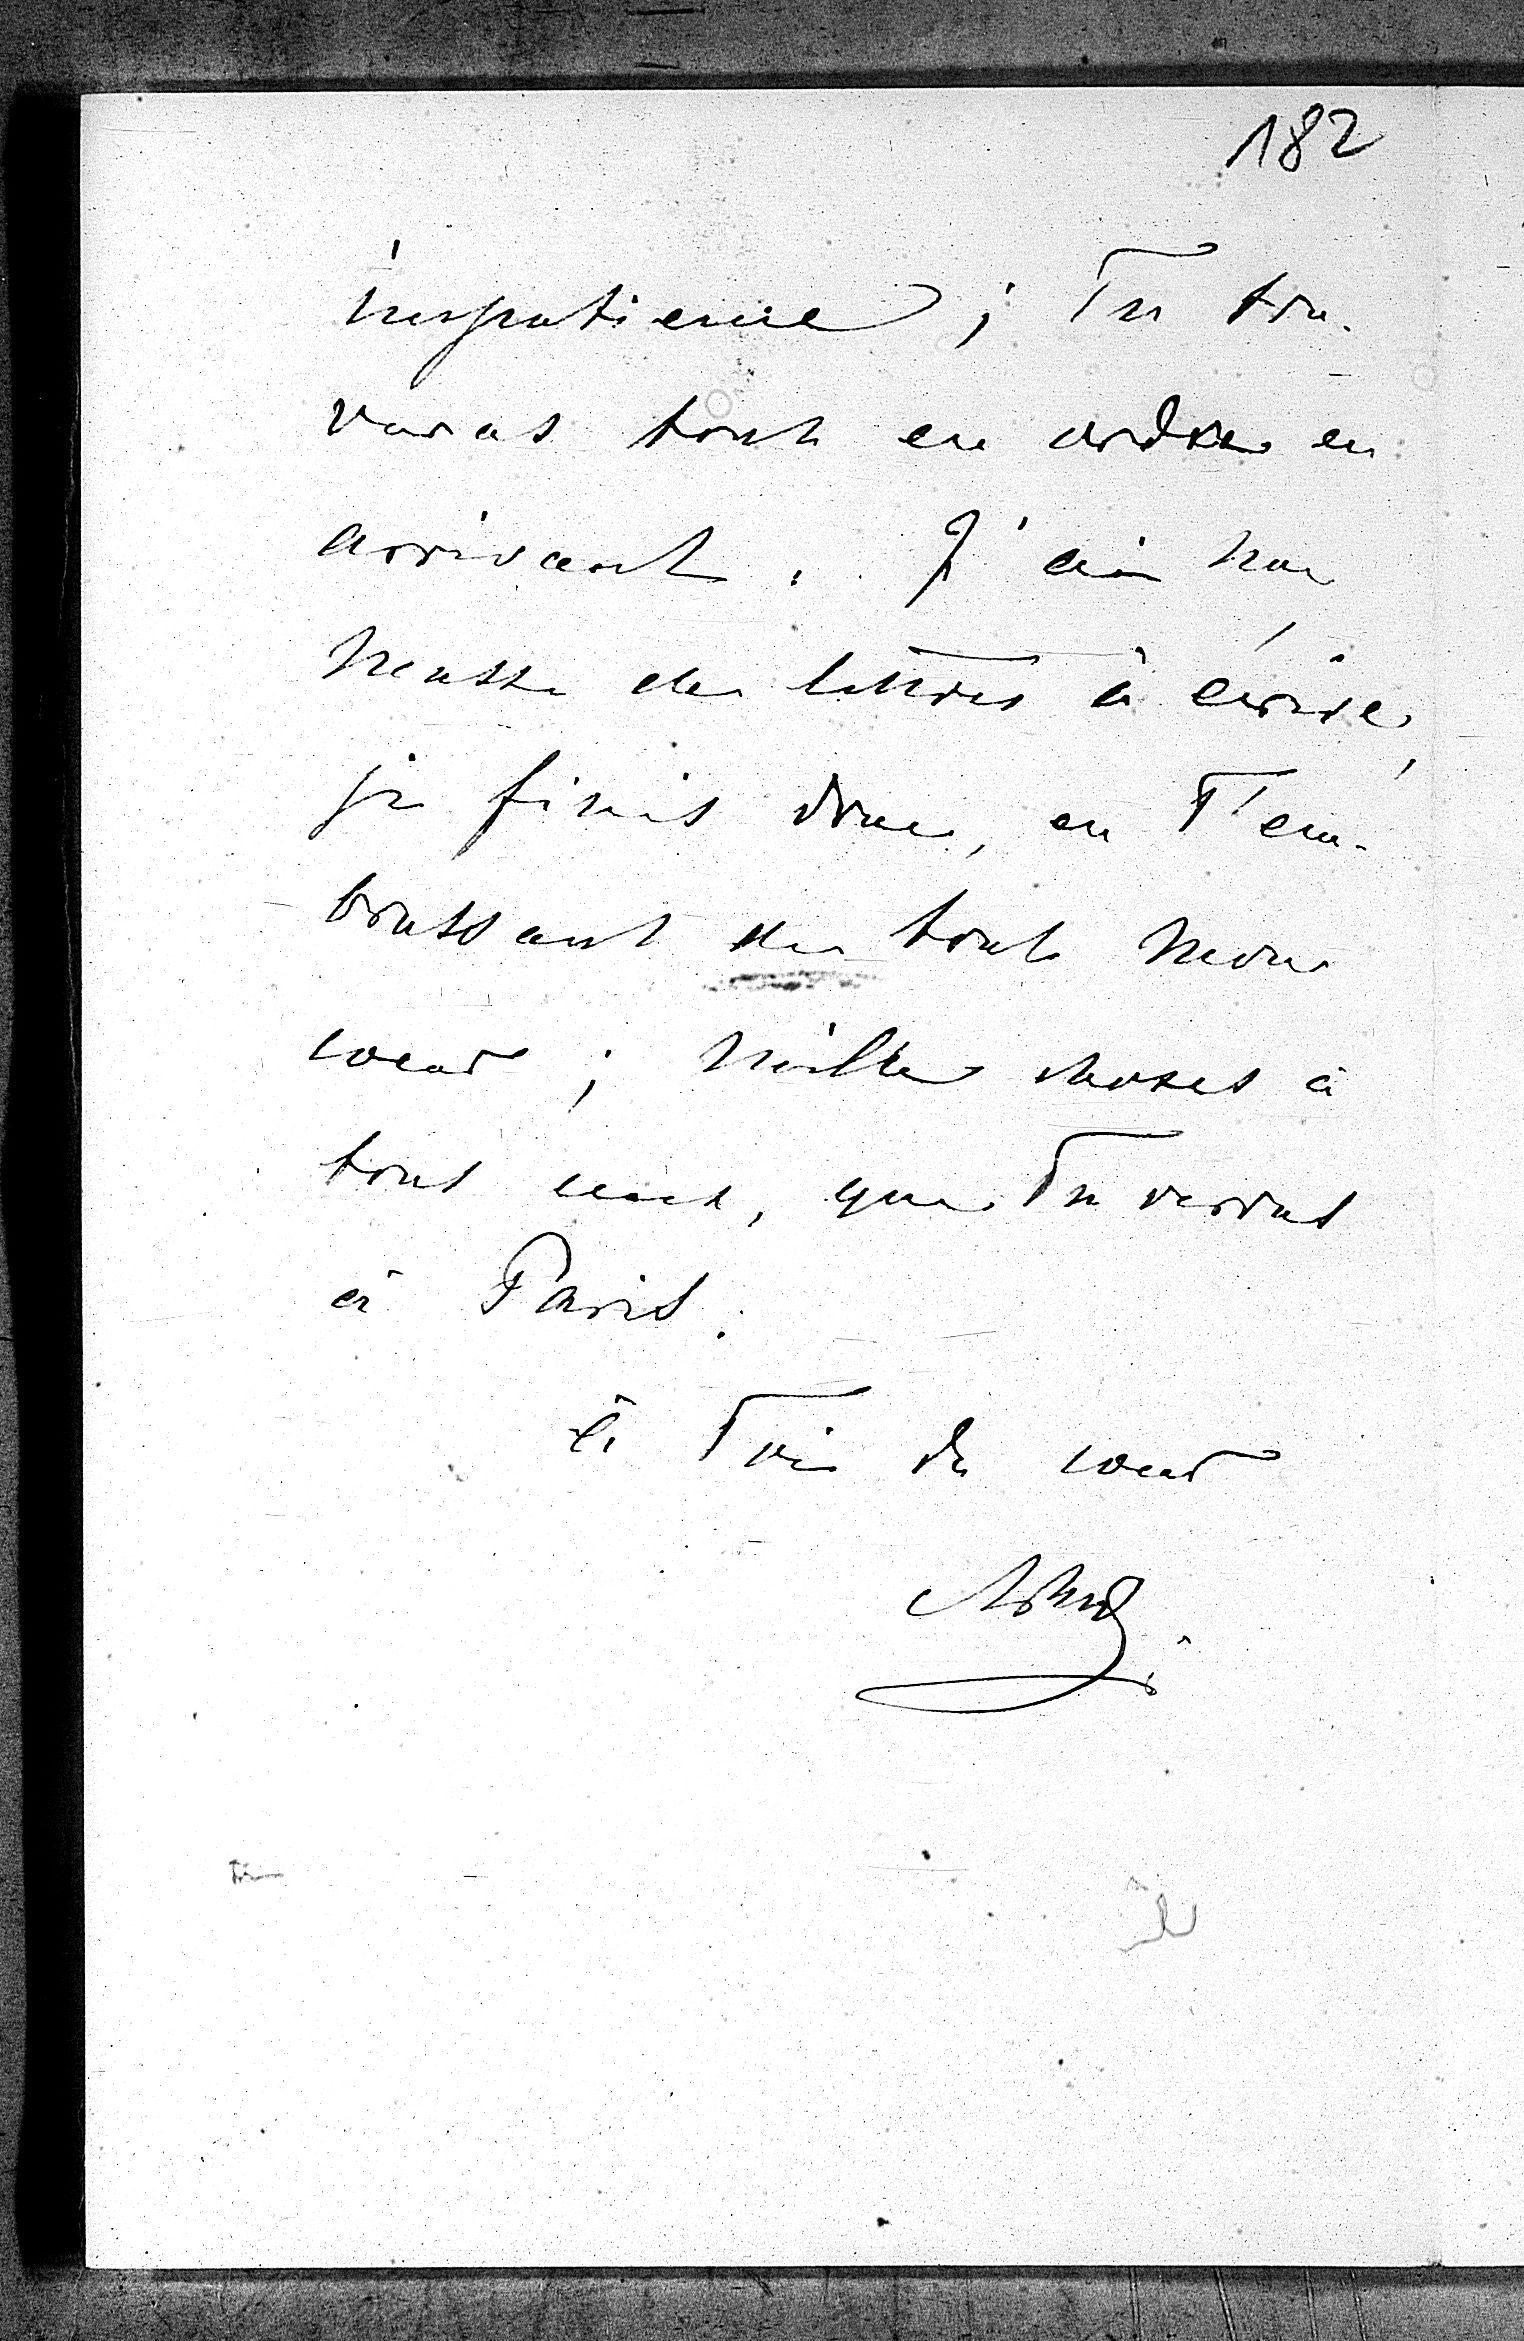 182
impatience ; Tu trou-
veras tout en ordre en
arrivant. J'ai une
masse de lettres à écrire,
je finis donc, en T'em-
brassant de tout mon
coeur ; mille choses à
tous ceux, que Tu verras
à Paris.
à Toi de coeur